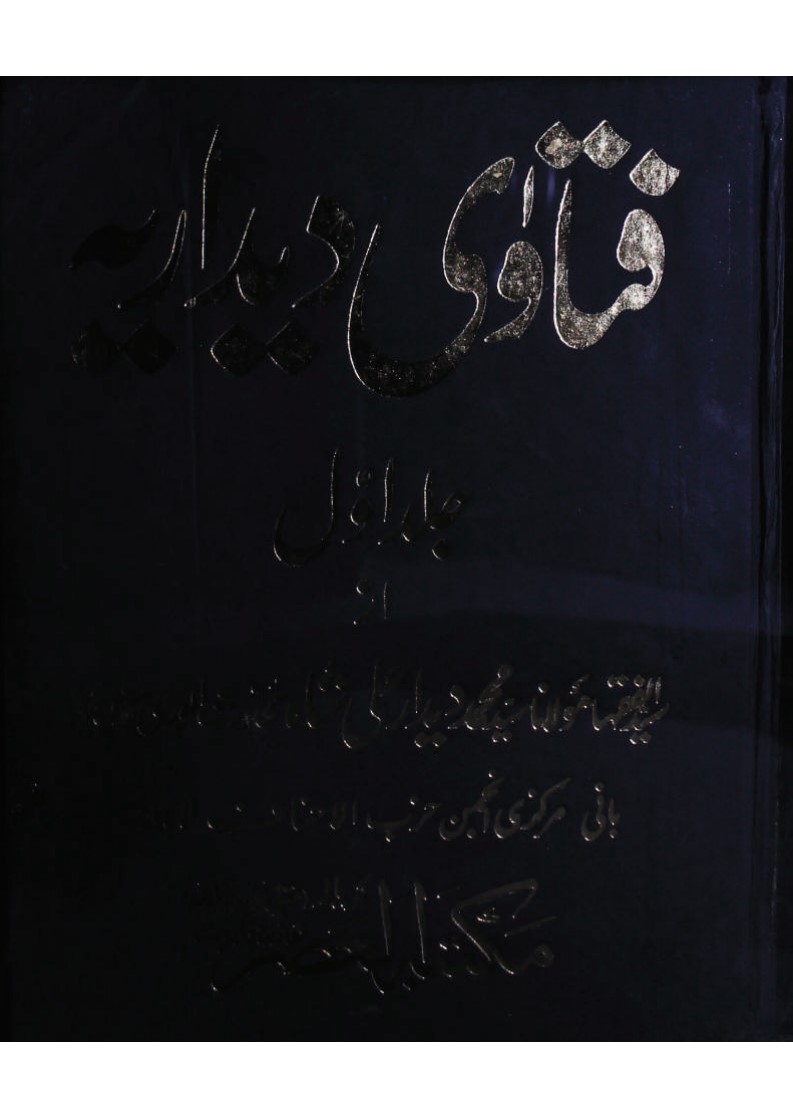 فتاوٰی دیداریہ
جلد اوّل
از
سید الفقہا مولانا سید محمد دیدار علی شاہ
بانی مرکزی انجمن حزب الاحناف
مکتبۃ العصر